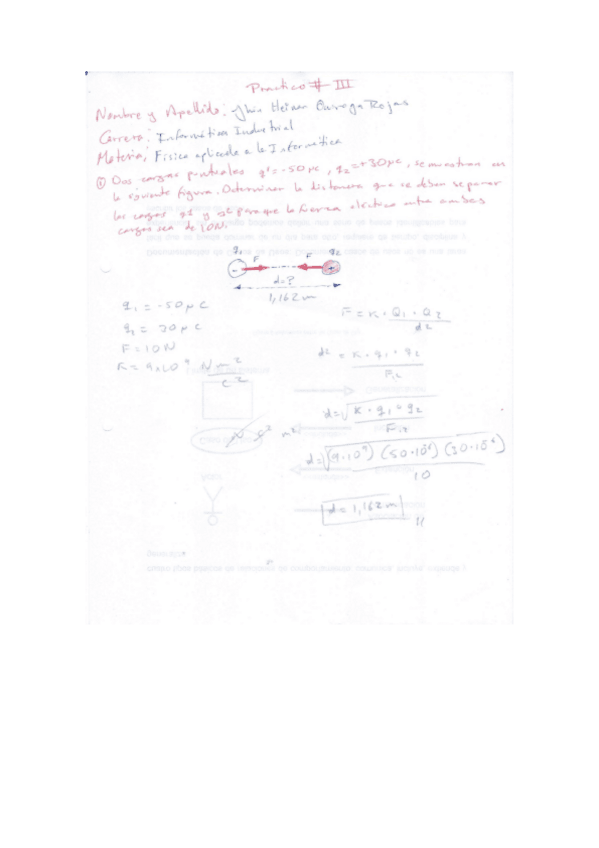 Practico # III
Nombre y Apellido: Jhin Heinan Quiroga Rojas
Carrera: Informática Industrial
Materia: Fisica aplicada a la Informática
① Dos cargas puntuales q1=-50μc, q2=+30μc, se muestran en
la siguiente figura. Determinar la distancia que se deben separar
las cargas q1 y q2 para que la fuerza eléctrica entre ambas
cargas sea de 10N.
q1 q2
F F
- +
d=?
1,162 m
q1 = -50 μC
q2 = 30 μC
F = 10 N
K = 9x10⁹ N m²
C²
F = K · Q1 · Q2
d²
d² = K · q1 · q2
F12
d = √K · q1 · q2
F12
m²
d = √(9·10⁹) (50·10⁻⁶) (30·10⁻⁶)
10
d = 1,162 m